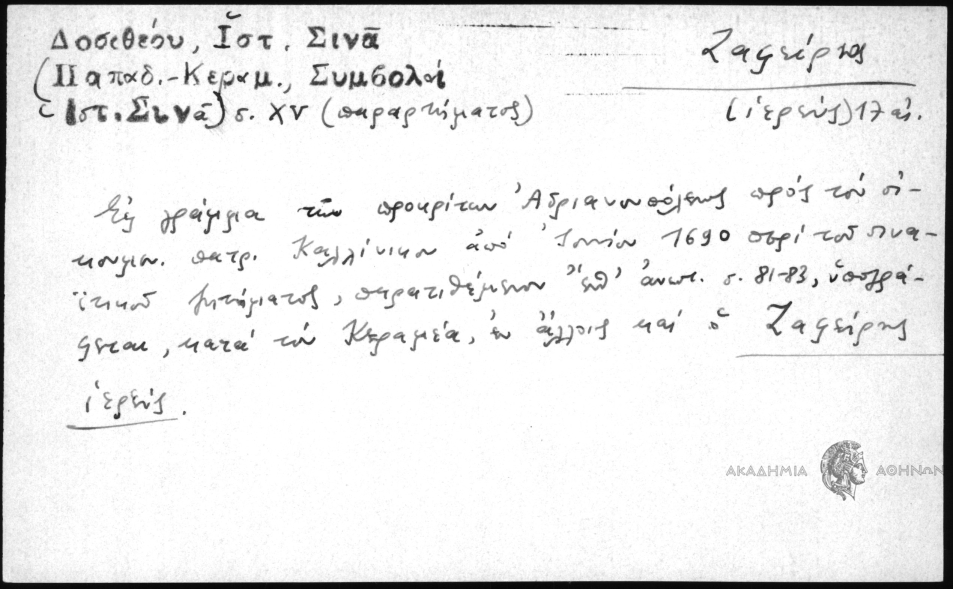 Δοσιθέου, Ἱστ. Σινᾶ
(Παπαδ.-Κεραμ., Συμβολαί
Ἱστ. Σινᾶ) σ. XV (παραρτήματος)
Ζαφείρης
(ἱερεύς) 17 αἰ.
Εἰς γράμμα τῶν προκρίτων Ἀδριανουπόλεως πρός τόν οἰ-
κουμεν. πατρ. Καλλίνικον ἀπό Ἰουνίου 1690 περί τοῦ σινα-
ϊτικοῦ ζητήματος, παρατιθέμενον ἐπ' ἀνωτ. σ. 81-83, ὑπογρά-
φεται, κατά τόν Κεραμέα, ἐν ἄλλοις καί ὁ Ζαφείρης
ἱερεύς.
ΑΚΑΔΗΜΙΑ ΑΘΗΝΩΝ